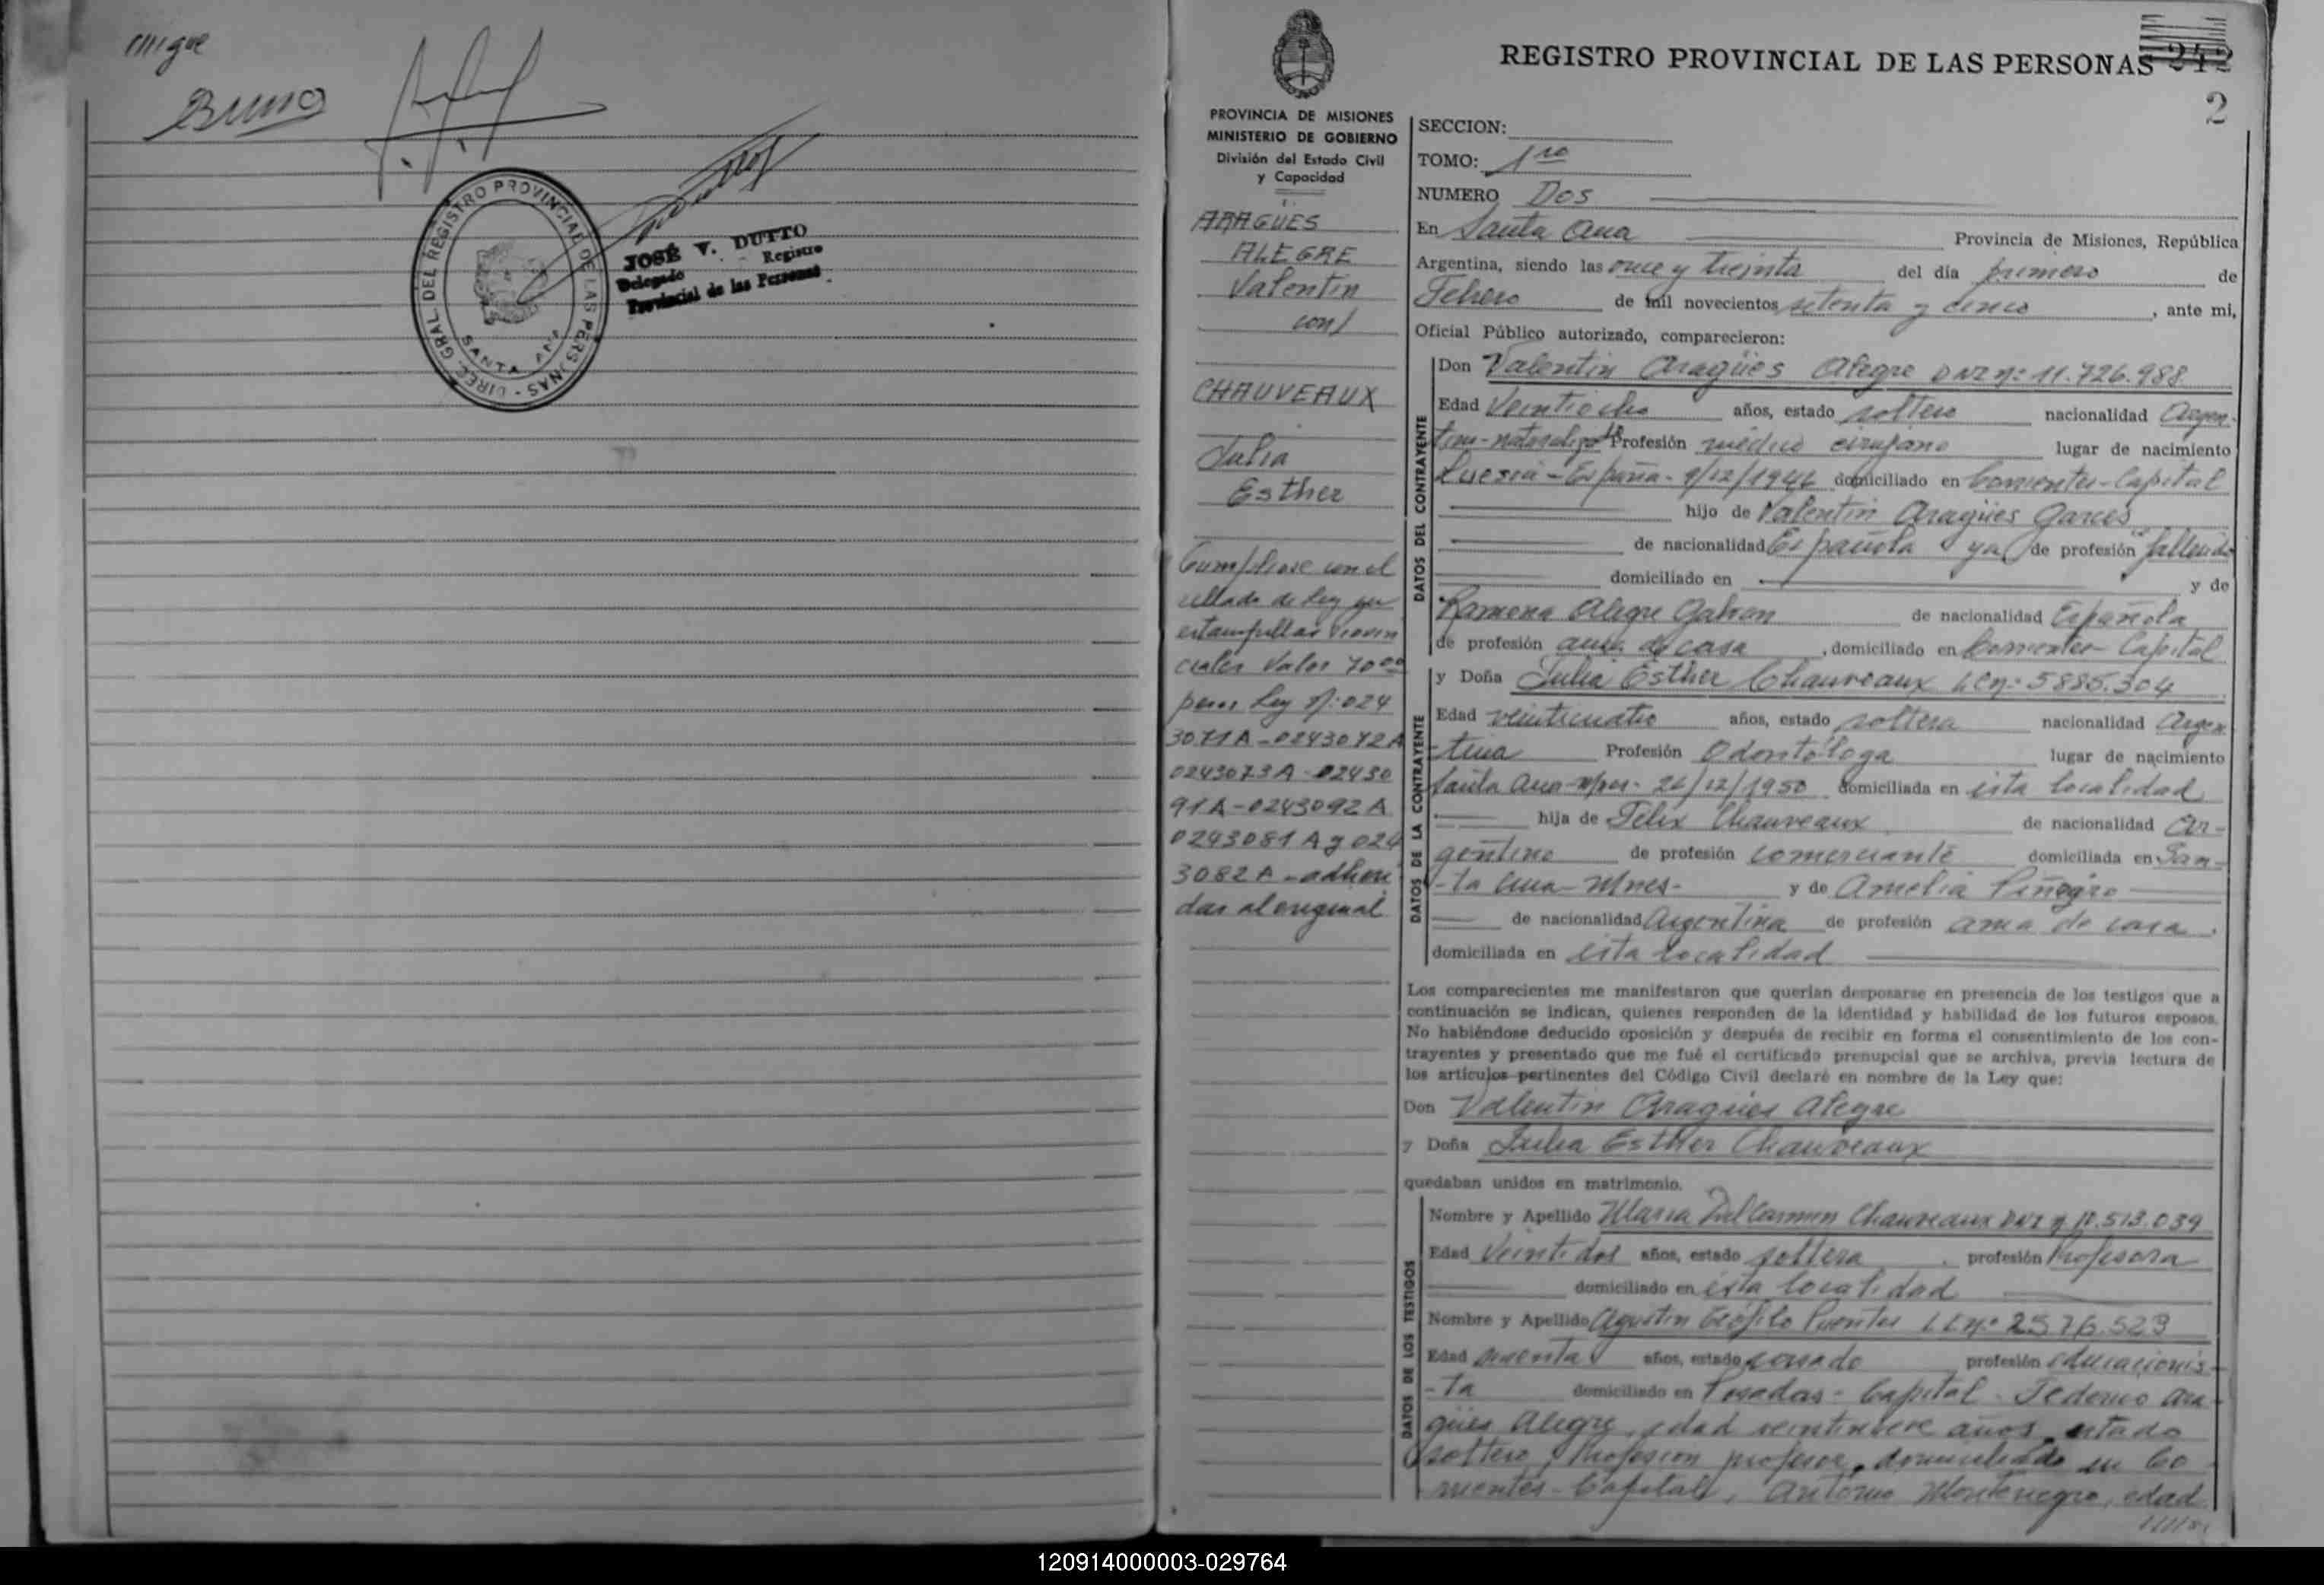 Bruno
DIREC. GRAL. DEL REGISTRO PROVINCIAL DE LAS PERSONAS -
SANTA ANA
JOSÉ V. DUTTO
Delegado Registro
Provincial de las Personas
REGISTRO PROVINCIAL DE LAS PERSONAS 242
2
PROVINCIA DE MISIONES
MINISTERIO DE GOBIERNO
División del Estado Civil
y Capacidad
ARAGUES
ALEGRE
Valentin
con/
CHAUVEAUX
Julia
Esther
Cumplase con el
sellado de Ley
estampillas Provin
ciales Valor 7000
pesos Ley Nº: 024
3071A - 0243072A
0243073A - 02430
91A - 0243092A
0243081A y 024
3082A - adheri
das al original
SECCION:
TOMO: 1ro
NUMERO Dos
En Santa Ana Provincia de Misiones, República
Argentina, siendo las once y treinta del día primero de
Febrero de mil novecientos setenta y cinco, ante mi,
Oficial Público autorizado, comparecieron:
DATOS DEL CONTRAYENTE
Don Valentin Aragües Alegre DNI nº: 11.726.988
Edad Veintiocho años, estado soltero nacionalidad Argen-
tino-naturalizado Profesión médico cirujano lugar de nacimiento
Luesia - España - 9/12/1946 domiciliado en Corrientes - Capital
hijo de Valentin Aragües Garces
de nacionalidad Española ya de profesión fallecido
domiciliado en y de
Ramona Alegre de nacionalidad Española
de profesión ama de casa, domiciliado en Corrientes - Capital
DATOS DE LA CONTRAYENTE
y Doña Julia Esther Chauveaux LC nº: 5885.304
Edad veinticuatro años, estado soltera nacionalidad Argen
-tina Profesión Odontóloga lugar de nacimiento
Santa Ana - Mnes - 26/12/1950 domiciliada en esta localidad
hija de Felix Chauveaux de nacionalidad Ar-
gentino de profesión comerciante domiciliada en San-
-ta Ana - Mnes - y de Amelia Piñeyro
de nacionalidad Argentina de profesión ama de casa.
domiciliada en esta localidad
Los comparecientes me manifestaron que querían desposarse en presencia de los testigos que a
continuación se indican, quienes responden de la identidad y habilidad de los futuros esposos.
No habiéndose deducido oposición y después de recibir en forma el consentimiento de los con-
trayentes y presentado que me fué el certificado prenupcial que se archiva, previa lectura de
los artículos pertinentes del Código Civil declaré en nombre de la Ley que:
Don Valentin Aragües Alegre
y Doña Julia Esther Chauveaux
quedaban unidos en matrimonio.
DATOS DE LOS TESTIGOS
Nombre y Apellido Maria Del Carmen Chauveaux DNI nº 10.513.039
Edad Veintidos años, estado soltera profesión Profesora
domiciliado en esta localidad
Nombre y Apellido Agustin Teófilo Puentes LE nº 2576.523
Edad años, estado casado profesión educacionis-
-ta domiciliado en Posadas - Capital - Federico Ara-
gües Alegre, edad veintinueve años, estado
soltero, Profesion profesor, domiciliado en Co
rrientes - Capital, Antonio Montenegro, edad
120914000003-029764